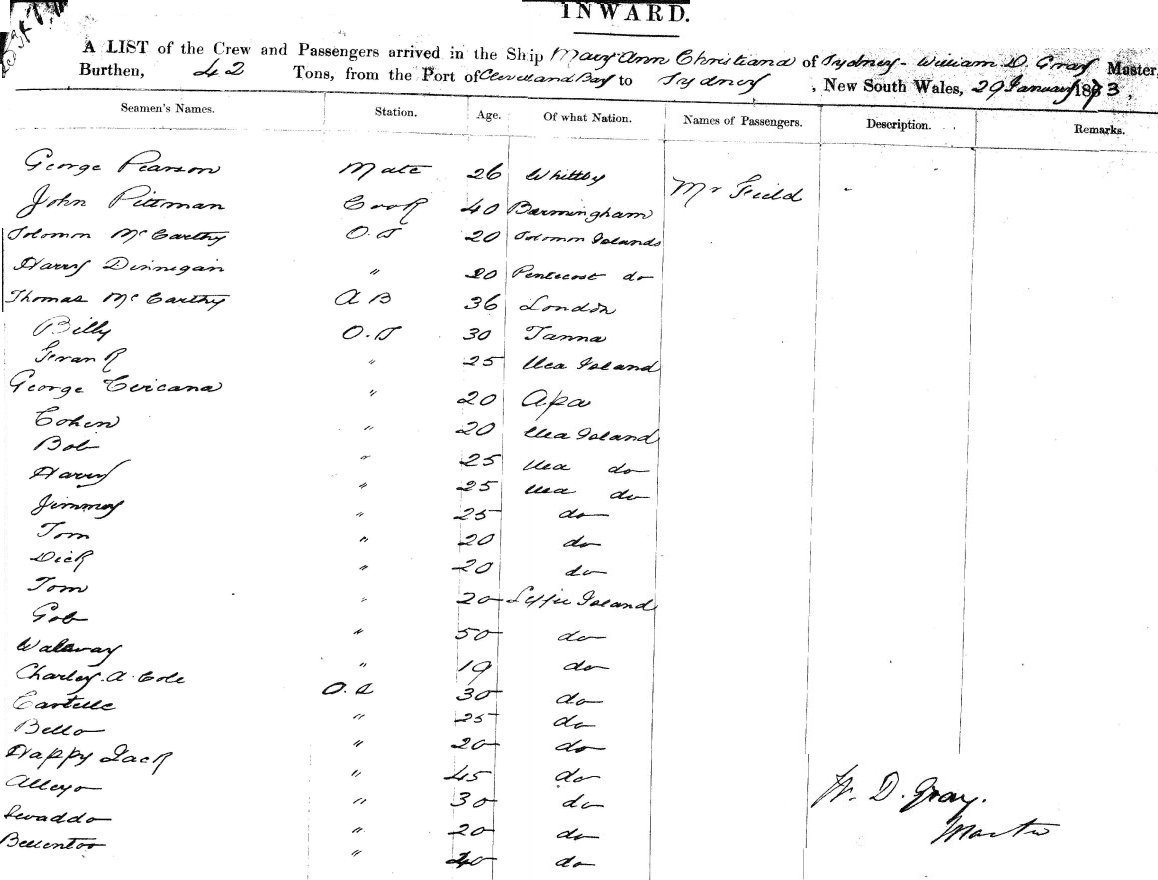 INWARD.
A LIST of the Crew and Passengers arrived in the Ship Mary Ann Christiana of Sydney - William D. Gray Master,
Burthen, 42 Tons, from the Port of Cleveland Bay to Sydney, New South Wales, 29 January 1873,
Seamen's Names. Station. Age. Of what Nation. Names of Passengers. Description. Remarks.
George Pearson Mate 26 Whittby Mr Field -
John Pittman Cook 40 Barmingham
Solomon McCarthy O.S 20 Solomon Islands
Harry Dinnegan " 20 Pentecost do
Thomas McCarthy A B 36 London
Billy O.S 30 Tanna
" 25 Uea Island
George " 20 Apa
Cohen " 20 Uea Island
Bob " 25 Uea do
Harry " 25 Uea do
Jimmy " 25 do
Tom " 20 do
Dick " 20 do
Tom " 20 Island
Gob " 50 do
" 19 do
Charley A Cole O.S 30 do
" 25 do
Bello " 20 do
Happy Jack " 45 do
Alleyo " 30 do
" 20 do
" 40 do
W. D. Gray.
Master